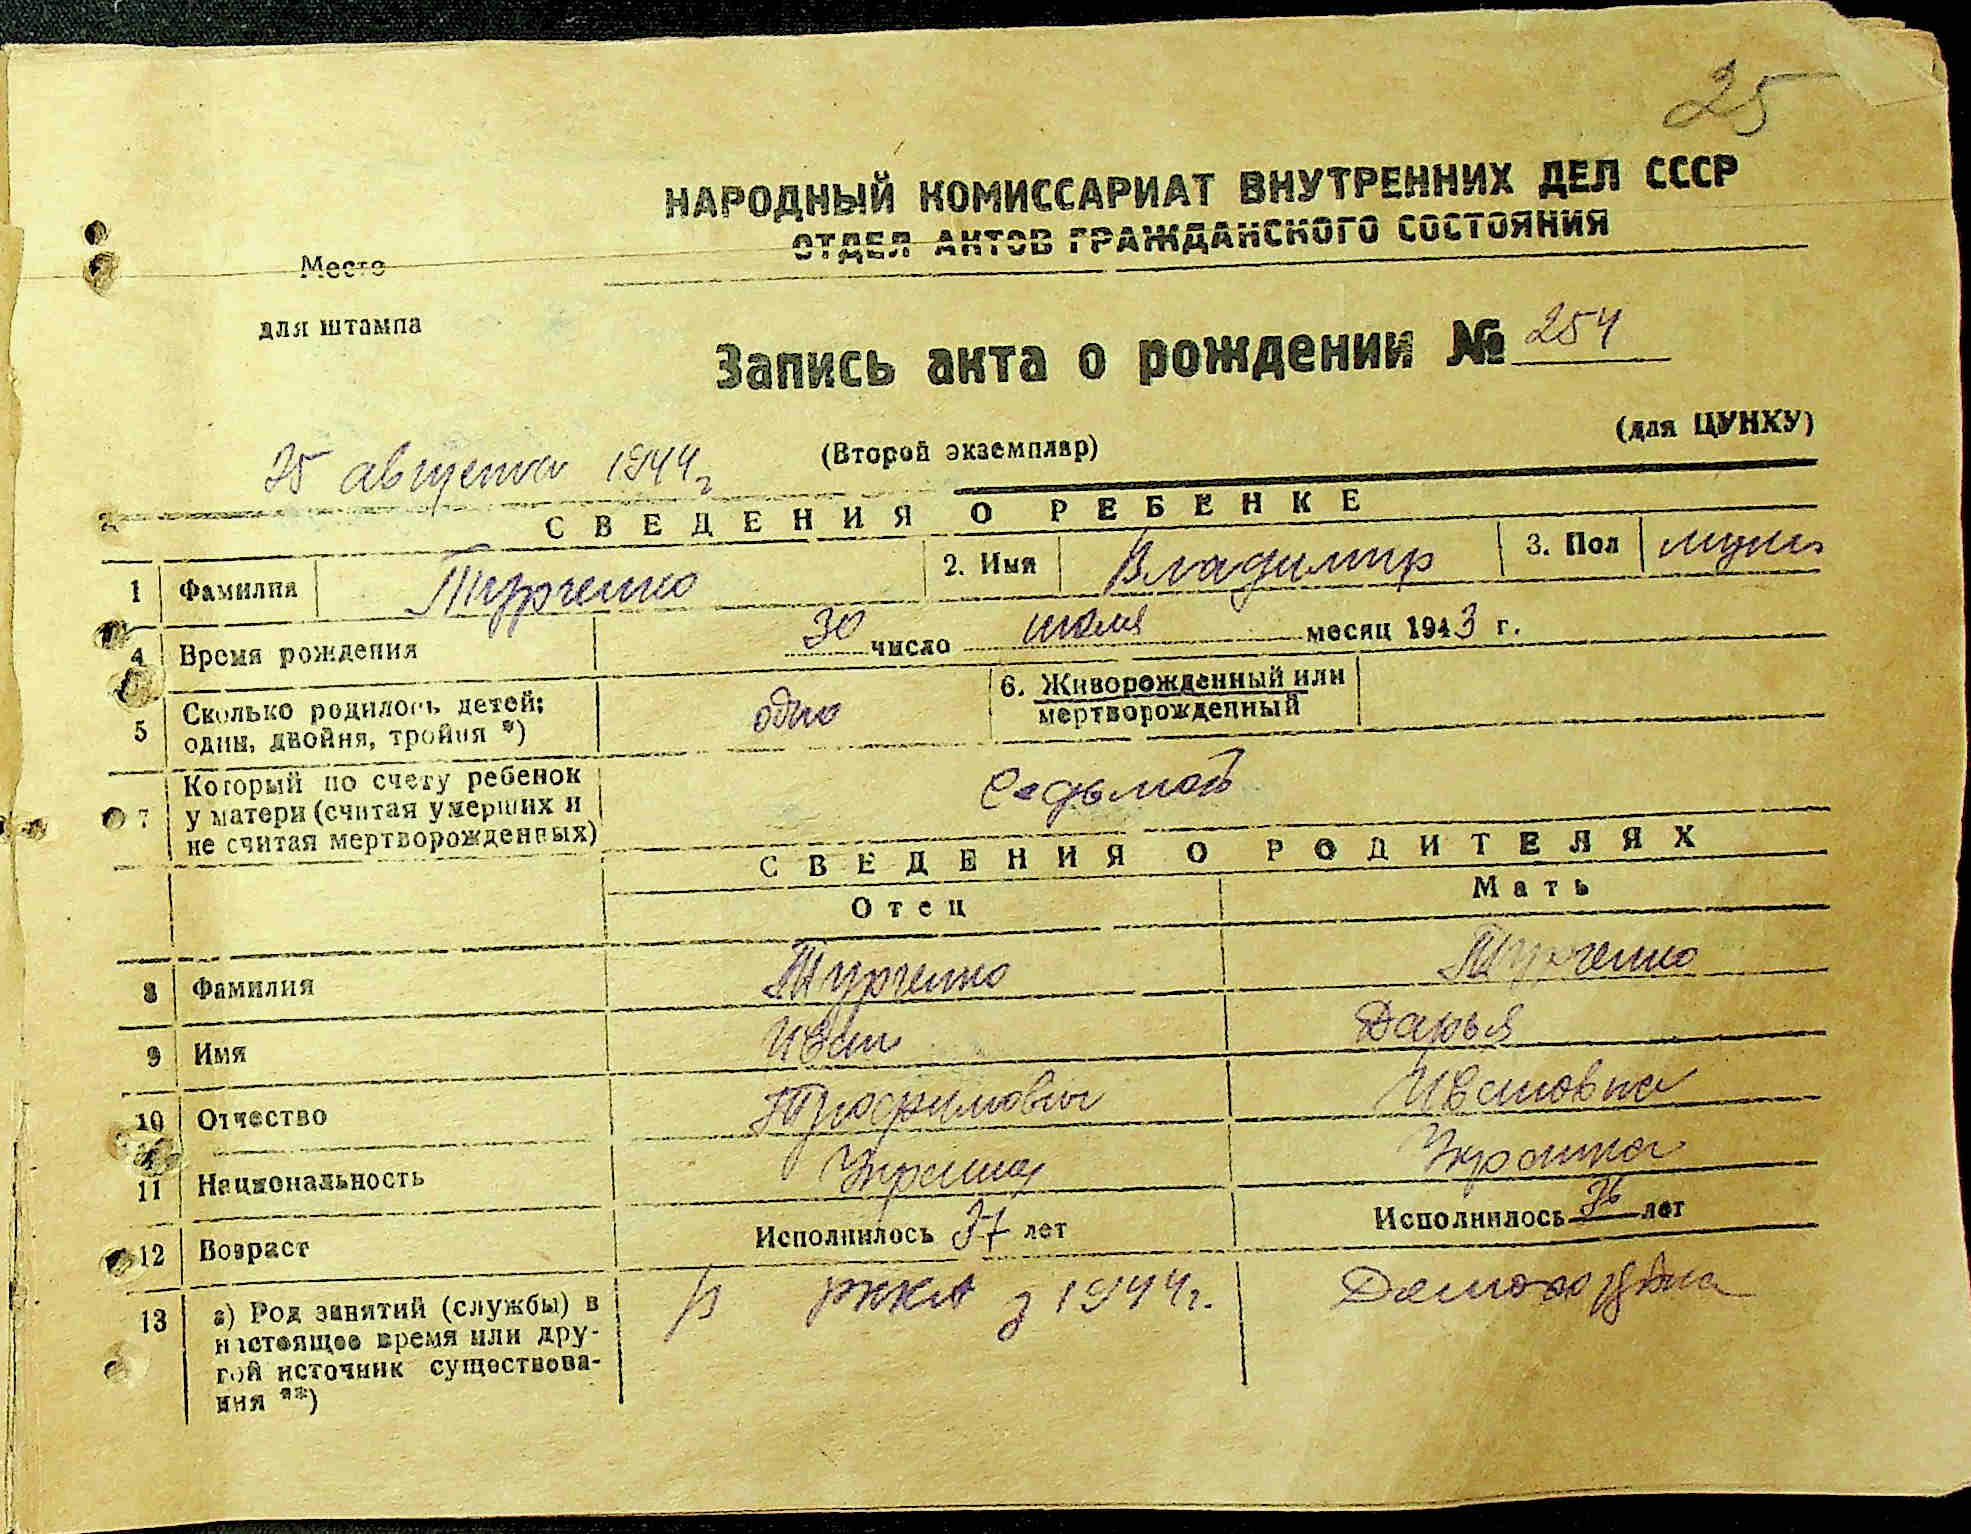 25
НАРОДНЫЙ КОМИССАРИАТ ВНУТРЕННИХ ДЕЛ СССР
ОТДЕЛ АКТОВ ГРАЖДАНСКОГО СОСТОЯНИЯ
Место
для штампа
Запись акта о рождении № 254
(Второй экземпляр) (для ЦУНХУ)
25 августа 1944 г
СВЕДЕНИЯ О РЕБЕНКЕ
1 Фамилия Турченко 2. Имя Владимир 3. Пол муж
4 Время рождения 30 число июля месяц 1943 г.
5 Сколько родилось детей: один, двойня, тройня *) одно 6. Живорожденный или мертворожденный
7 Который по счету ребенок у матери (считая умерших и не считая мертворожденных) седьмой
СВЕДЕНИЯ О РОДИТЕЛЯХ
Отец Мать
8 Фамилия Турченко Турченко
9 Имя Иван Дарья
10 Отчество Трофимович Ивановна
11 Национальность Украинец Украинка
12 Возраст Исполнилось 37 лет Исполнилось 36 лет
13 а) Род занятий (службы) в настоящее время или другой источник существования **) В РККА з 1944 г. Домохозяйка